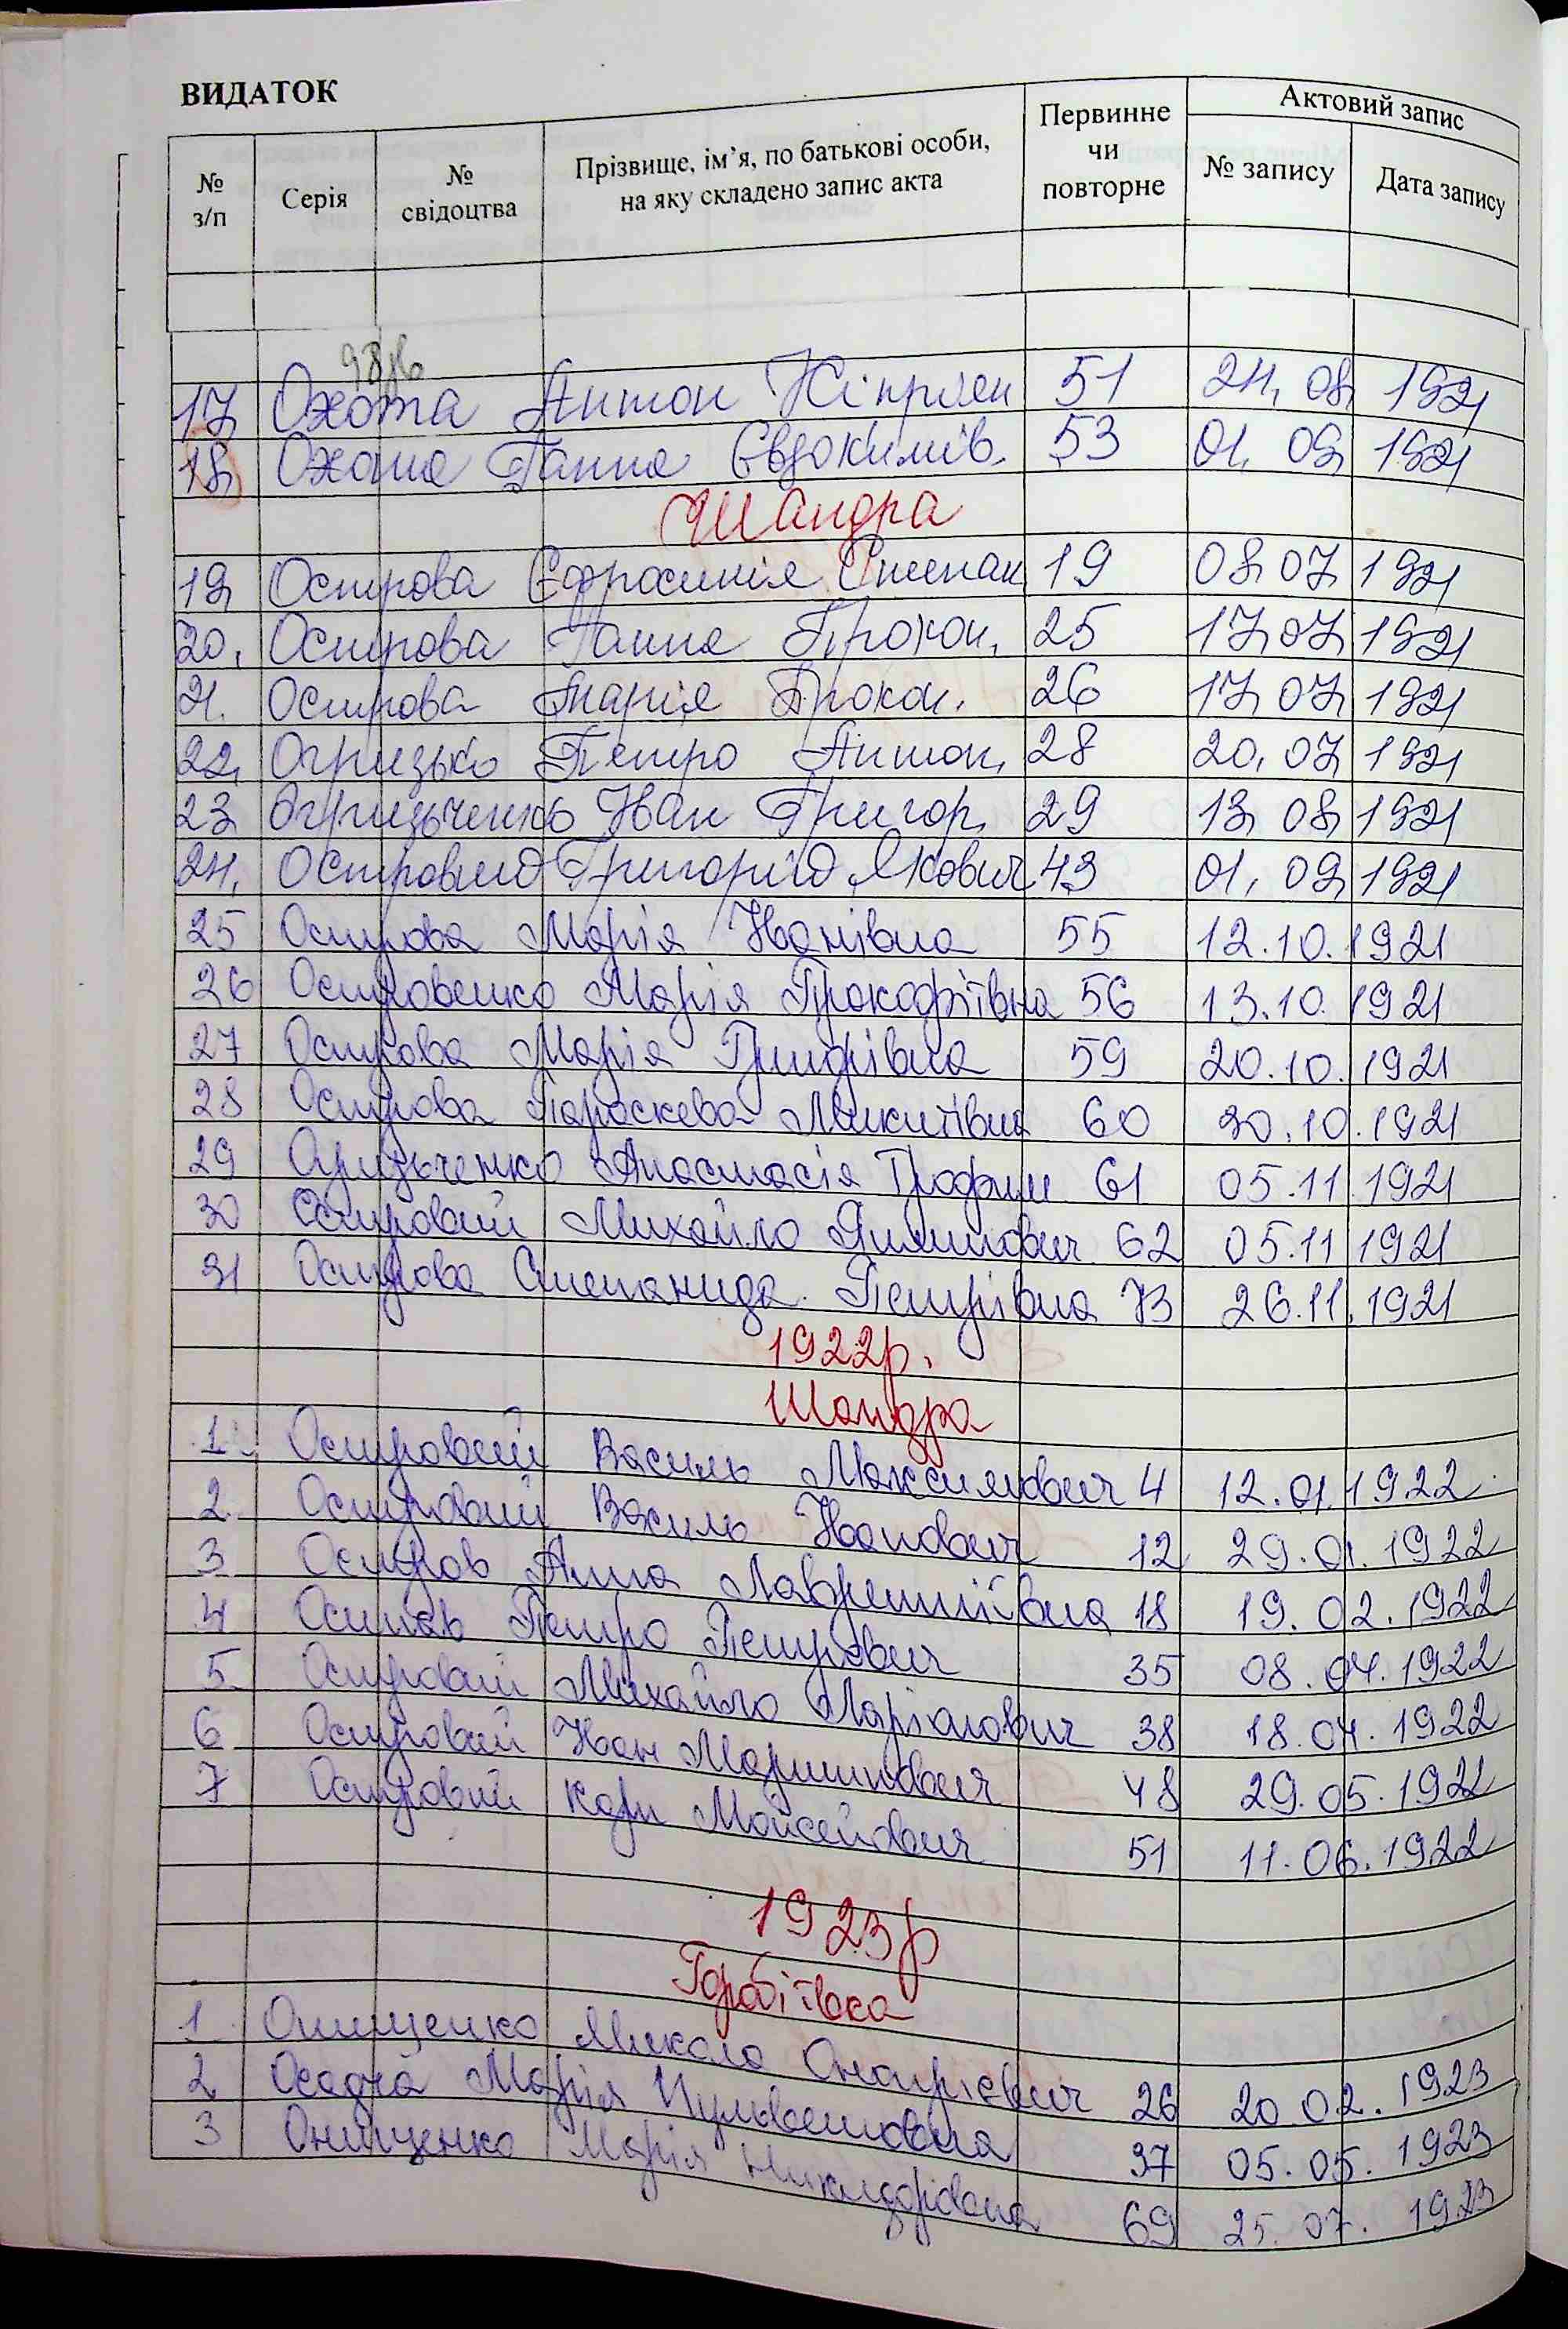 ВИДАТОК
№ з/п Серія № свідоцтва Прізвище, ім’я, по батькові особи, на яку складено запис акта Первинне чи повторне Актовий запис № запису Дата запису
17 Охота Антон Кіпріян 51 24. 08 1921
18 Охота Ганна Євдокимів. 53 01. 09 1921
Шандра
19 Острова Єфросинія Степан 19 08 07 1921
20. Острова Ганна Прокоп. 25 17 07 1921
21. Острова Марія Прокоп. 26 17 07 1921
22. Огризько Петро Антон. 28 20. 07 1921
23 Огризьченко Іван Григор. 29 13 08 1921
24. Островий Григорій Якович 43 01. 09 1921
25 Острова Марія Іванівна 55 12.10.1921
26 Островенко Марія Прокофіївна 56 13.10.1921
27 Острова Марія 59 20.10.1921
28 Острова Параскева Микитівна 60 30.10.1921
29 Огризьченко Анастасія Трофим 61 05.11.1921
30 Островий Михайло 62 05.11 1921
31 Острова Степанида Петрівна 73 26.11.1921
1922р.
Шандра
1 Островий Василь Максимович 4 12.01.1922
2 Островий Василь Іванович 12 29.01.1922
3 Остров Анна Лаврентіївна 18 19.02.1922
4 Петро Петрович 35 08.04.1922
5 Островий Михайло Маріанович 38 18.04.1922
6 Островий Іван Мартинович 48 29.05.1922
7 Островий Карп Мойсейович 51 11.06.1922
1923р
Горбіївка
1 Онищенко Микола Онапрієвич 26 20.02.1923
2 Осадча Марія 37 05.05.1923
3 Онищенко Марія Никифорівна 69 25.07.1923